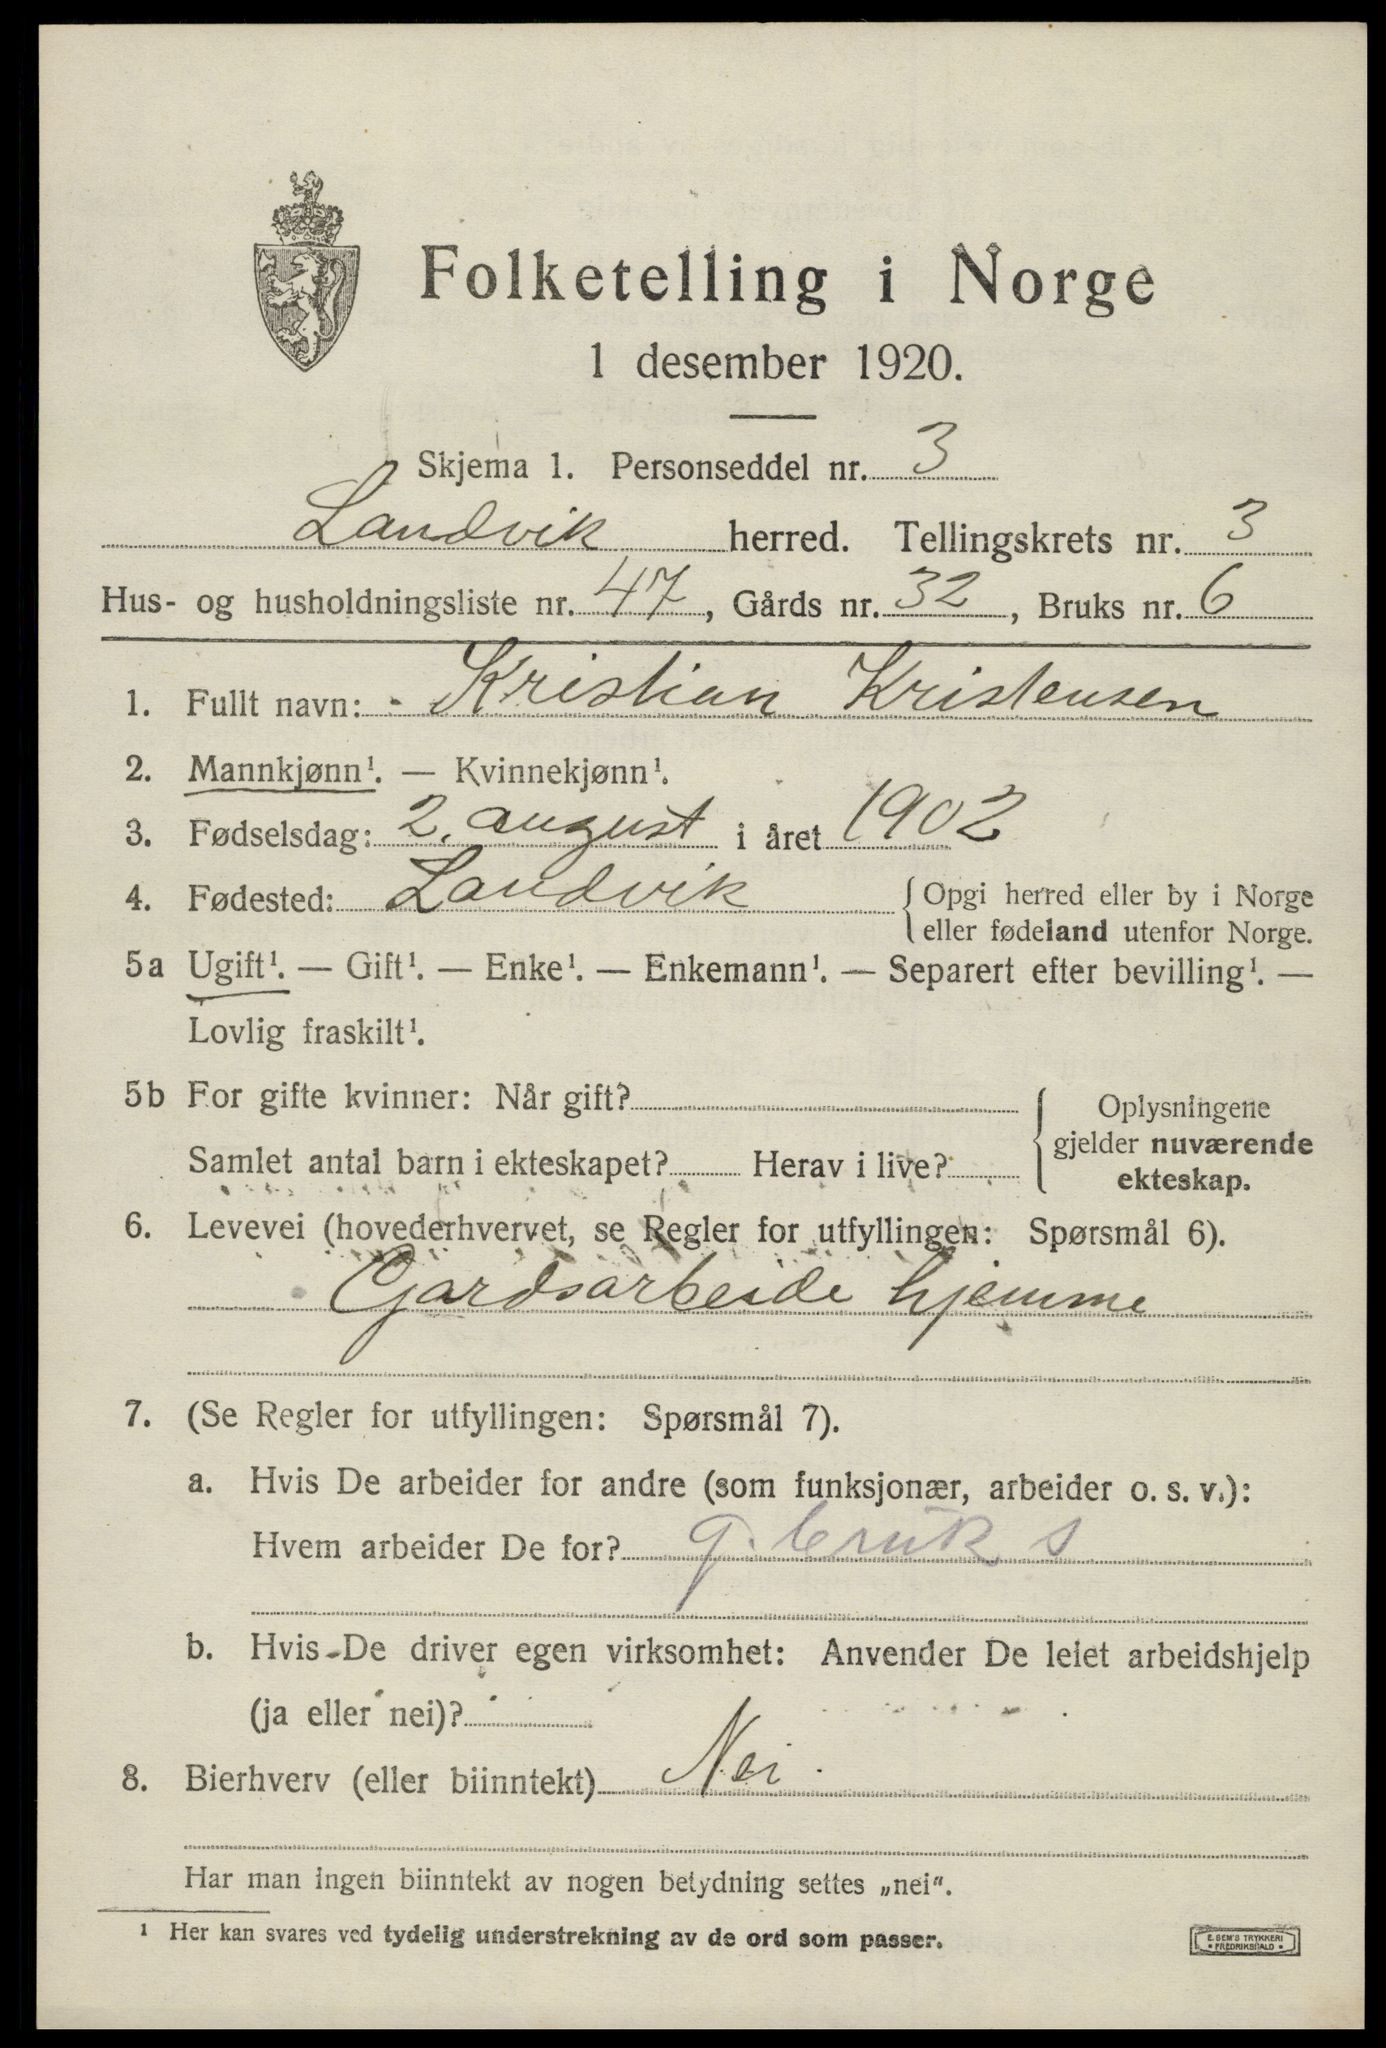 Folketelling i Norge
1 desember 1920.
Skjema 1. Personseddel nr. 3
Landvik herred. Tellingskrets nr. 3
Hus- og husholdningsliste nr. 47, Gårds nr. 32, Bruks nr. 6
1. Fullt navn: Kristian Kristensen
2. Mannkjønn¹. — Kvinnekjønn¹.
3. Fødselsdag: 2. august i året 1902
4. Fødested: Landvik { Opgi herred eller by i Norge
eller fødeland utenfor Norge.
5a Ugift¹. — Gift¹. — Enke¹. — Enkemann¹. — Separert efter bevilling¹. —
Lovlig fraskilt¹.
5b For gifte kvinner: Når gift?
Samlet antal barn i ekteskapet? Herav i live?
Oplysningene
gjelder nuværende
ekteskap.
6. Levevei (hovederhvervet, se Regler for utfyllingen: Spørsmål 6).
Gardsarbeide hjemme
7. (Se Regler for utfyllingen: Spørsmål 7).
a. Hvis De arbeider for andre (som funksjonær, arbeider o. s. v.):
Hvem arbeider De for? g. bruk s
b. Hvis De driver egen virksomhet: Anvender De leiet arbeidshjelp
(ja eller nei)?
8. Bierhverv (eller biinntekt) Nei.
Har man ingen biinntekt av nogen betydning settes „nei".
¹ Her kan svares ved tydelig understrekning av de ord som passer.
E. SEM'S TRYKKERI
• FREDRIKSHALD •